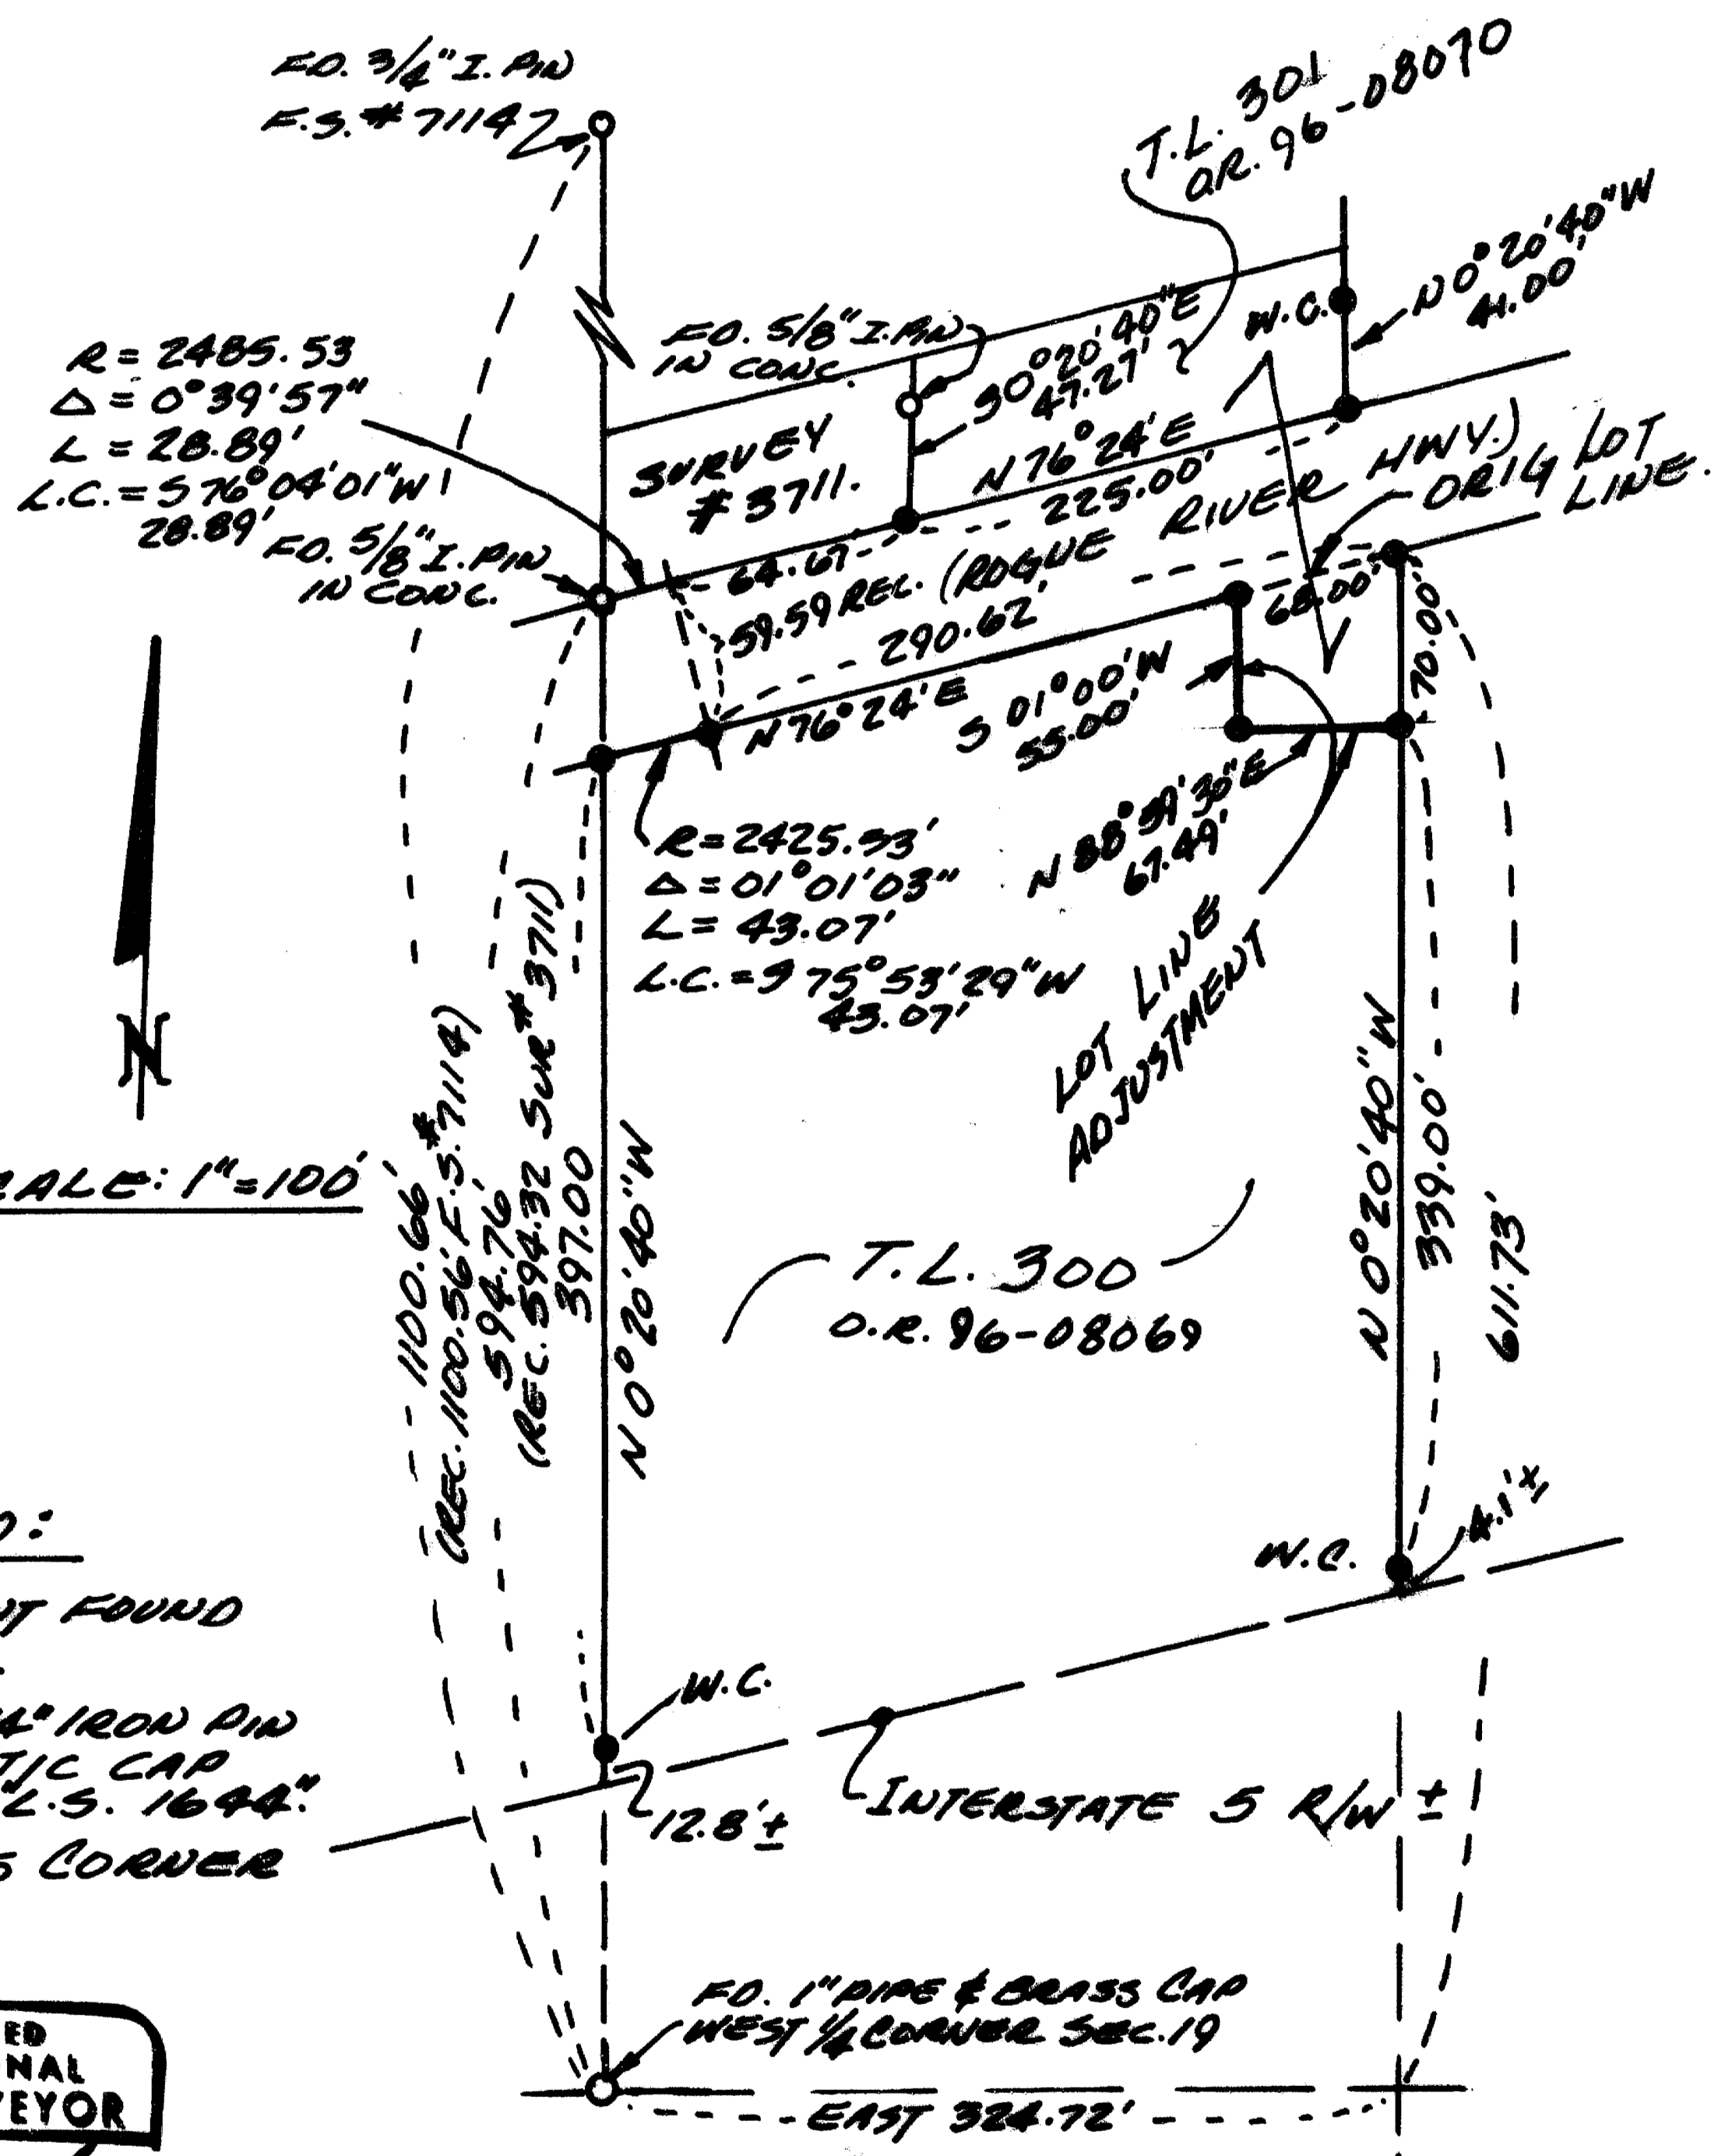 FD. 3/4" I. PIN
F.S. #7114
T.L. 301
O.R. 96-08070
N 0°20'40" W
41.00'
W.C.
FD. 5/8" I. PIN
IN CONC.
S 0°20'40" E
47.27'
R = 2485.53
Δ = 0°39'57"
L = 28.89'
L.C. = S 76°04'01" W
28.89'
SURVEY
#3711.
N 76°24' E
225.00'
64.67
59.59 REC.
(ROGUE RIVER HWY.)
ORIG LOT
LINE.
FD. 5/8" I. PIN
IN CONC.
290.62'
68.00'
70.00
N 76°24' E
S 01°00' W
55.00'
N 88°59'30" E
67.49'
R = 2425.53'
Δ = 01°01'03"
L = 43.07'
L.C. = S 75°53'29" W
43.07'
LOT LINE
ADJUSTMENT
N
ALE: 1"=100'
1100.66'
(REC. 1100.56' F.S. #7114)
594.76'
(REC. 594.32 SUR #3711)
397.00
N 0°20'40" W
T.L. 300
O.R. 96-08069
N 0°20'40" W
339.00'
611.73'
W.C.
4.1'±
D:
T FOUND
4" IRON PIN
TIC CAP
"L.S. 1644".
S CORNER
W.C.
12.8'±
INTERSTATE 5 R/W ±
FD. 1" PIPE & BRASS CAP
WEST 1/4 CORNER SEC. 19
EAST 324.72'
ED
NAL
VEYOR